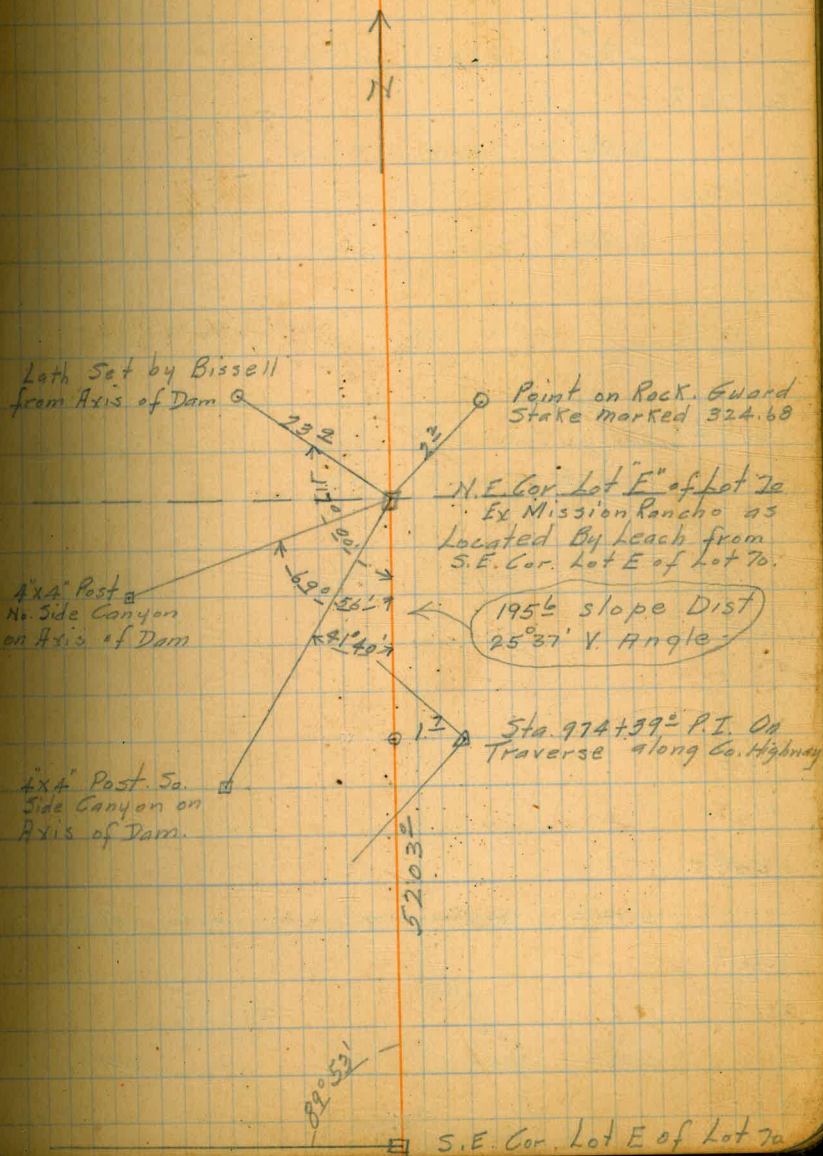 N
Lath Set by Bissell
from Axis of Dam
23²
2²
Point on Rock. Guard
Stake marked 324.68
117°-00'
N.E. Cor. Lot "E" of Lot 70
Ex Mission Rancho as
Located By Leach from
S.E. Cor. Lot E of Lot 70.
4"x4" Post
No. Side Canyon
on Axis of Dam
69°-56'
195⁶ slope Dist
25°37' V. Angle
41°40'
1⁷
Sta. 974+39⁰ P.I. On
Traverse along Co. Highway
4"x4" Post. So.
Side Canyon on
Axis of Dam.
5203⁰
89°53'
S.E. Cor. Lot E of Lot 70